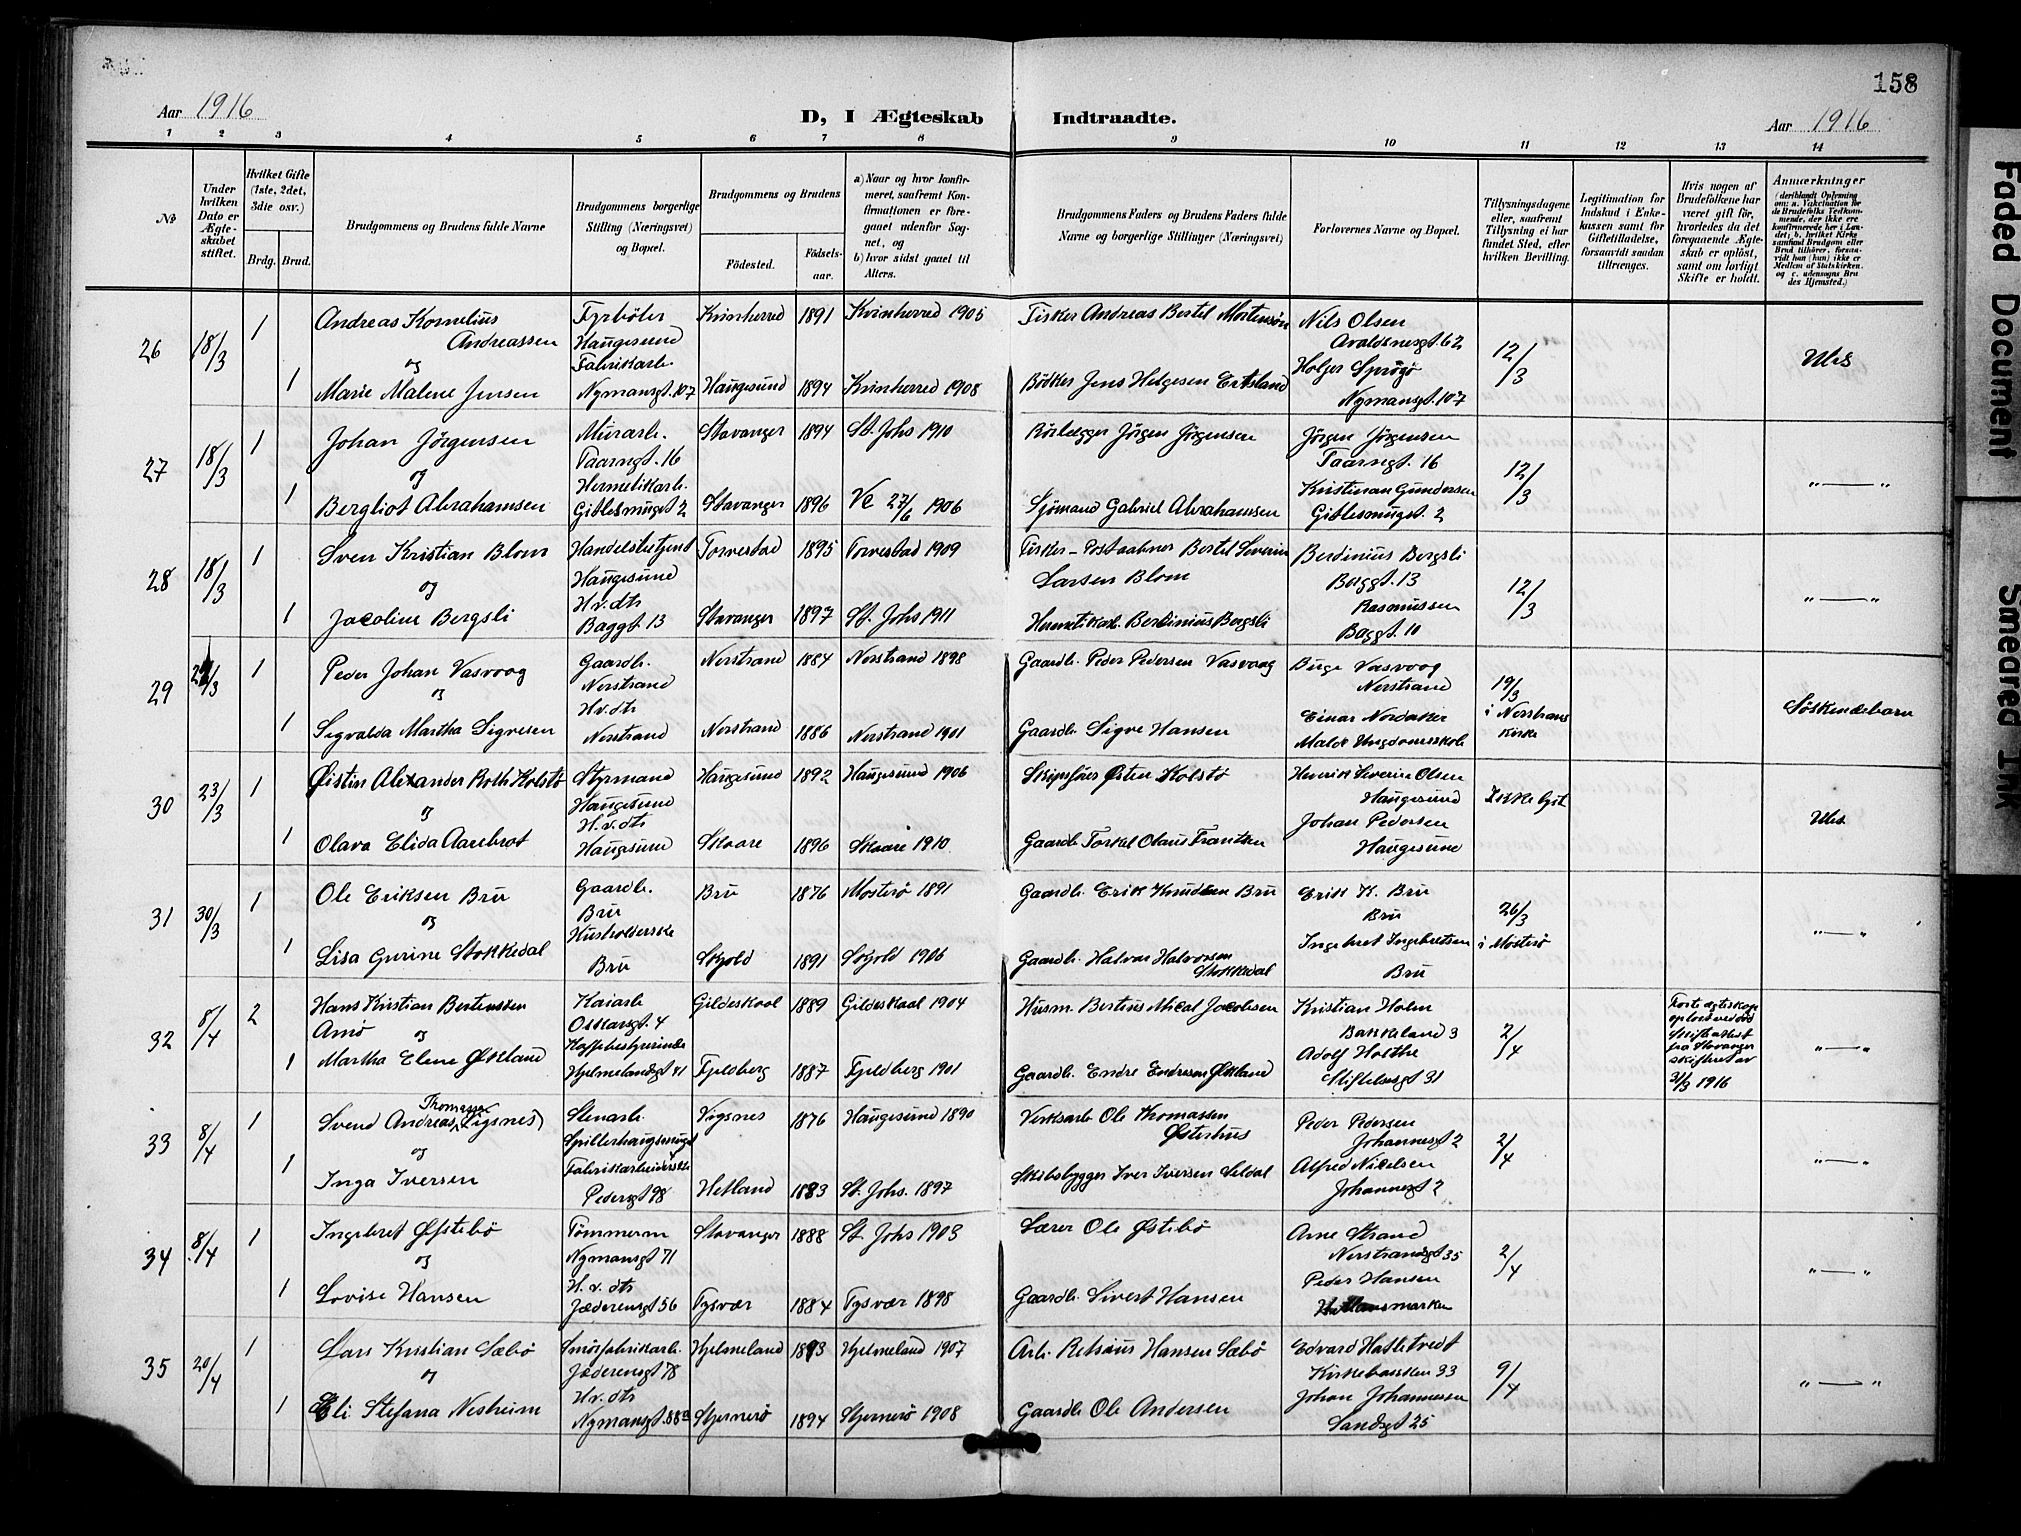 158
Aar 1916
D, I Ægteskab Indtraadte.
Aar 1916
1 2 3 4 5 6 7 8 9 10 11 12 13 14
No
Under hvilken Dato er Ægteskabet stiftet.
Hvilket Gifte (1ste, 2det, 3die osv.)
Brdg. Brud.
Brudgommens og Brudens fulde Navne
Brudgommens borgerlige Stilling (Næringsvei) og Bopæl.
Brudgommens og Brudens
Födested.
Födselsaar.
a) Naar og hvor konfirmeret, saafremt Konfirmationen er foregaaet udenfor Sognet, og
b) hvor sidst gaaet til Alters.
Brudgommens Faders og Brudens Faders fulde Navne og borgerlige Stillinger (Næringsvei)
Forlovernes Navne og Bopæl.
Tillysningsdagene eller, saafremt Tillysning ei har fundet Sted, efter hvilken Bevilling.
Legitimation for Indskud i Enkekassen samt for Giftetilladelse, forsaavidt saadan tiltrænges.
Hvis nogen af Brudefolkene har været gift för, hvorledes da det foregaaende Ægteskab er oplöst, samt om lovligt Skifte er holdt.
Anmærkninger
26 18/3 1 Andreas Kornelius Andreassen Fyrböter Haugesund Kvinherred 1891 Kvinherred 1905 Fisker Andreas Bertel Mortensön Nils Olsen Avaldsnesgt. 62 12/3
og
1 Marie Malene Jensen Fabrikarb. Nymansgt. 107 Haugesund 1894 Kvinherred 1908 Bödker Jens Helgesen Ertsland Holger Sprögö Nymansgt. 107
27 18/3 1 Johan Jörgensen Murarb. Taarngt. 16 Stavanger 1894 St. Johs 1910 Rörlægger Jörgen Jörgensen Jörgen Jörgensen Taarngt. 16 12/3 " — "
og
1 Bergliot Abrahamsen Hermetikarb. Stavanger 1896 27/6 1906 Sjömand Gabriel Abrahamsen Kristinan Gundersen
28 18/3 1 Sven Kristian Blom Handelsbetjent Haugesund Torvestad 1895 Torvestad 1909 Fisker - Postaabner Bertel Severin Larsen Blom Berdinius Bergsli Baggt. 13 12/3 " — "
og
1 Jacoline Bergsli H.v. dtr Baggt. 13 Stavanger 1897 St. Johs 1911 Hermetikarb. Berdinius Bergsli Rasmussen Baggt. 10
29 1 Peder Johan Vasvaag Gaardb. Nerstrand Nerstrand 1884 Nerstrand 1898 Gaardb. Peder Pedersen Vasvaag Birge Vasvaag Nerstrand 19/3 i Nerstrand Kirke Söskendebarn
og
1 Sigvalda Martha Sigvesen H.v. dtr Nerstrand Nerstrand 1886 Nerstrand 1901 Gaardb. Sigve Hansen Einar Nordaker Malde Ungdomsskole
30 23/3 1 Østin Alexander Roth Kolstö Styrmand Haugesund Haugesund 1892 Haugesund 1906 Skipsförer Østen Kolstö Henrik Severin Olsen Haugesund Ikke lyst
og
1 Olava Elida Aarebrot H.v. dtr Haugesund Skaare 1896 Skaare 1910 Gaardb Torkel Olaus Frantzen Johan Pedersen Haugesund
31 30/3 1 Ole Eriksen Bru Gaardb. Bru Bru 1876 Mosterö 1891 Gaardb. Erik Knudsen Bru Erik K. Bru Bru 26/3 i Mosterö " — "
og
1 Lisa Gurine Stokkedal Husholderske Bru Skjold 1891 Skjold 1906 Gaardb. Halvor Halvorsen Stokkedal Ingebret Ingebretsen Bru
32 8/4 2 Hans Kristian Bertinssen Arnö Kaiarb Oskarsgt. 4 Gildeskaal 1889 Gildeskaal 1904 Husm. Bertius Mical Jacobsen Kristian Holm Bakkeland 3 2/4 31/3 1916 " — "
og
1 Martha Elene Økland Kaffebestyrerinde Hjelmelandsgt 41 Fjeldberg 1887 Fjeldberg 1901 Gaardb. Endre Endresen Økland Adolf Holthe Stiftelsesgt 31
33 8/4 1 Svend Andreas Thomassen Vigsnes Stenarb. Vigsnes 1876 Haugesund 1890 Verksarb Ole Thomassen Østerhus Peder Pedersen Johannesgt 2 2/4 " — "
og
1 Inga Iversen Fabrikarbeiderske Pedersgt 98 Hetland 1883 St. Johs. 1897 Skibsbygger Iver Iversen Seldal Alfred Nicelsen Johannesgt 2
34 8/4 1 Ingebret Østebö Tömmerm Nymansgt 71 Stavanger 1888 St. Johs 1903 Lærer Ole Østebö Arne Strand Nerstrandsgt 35 2/4 " — "
og
1 Lovise Hansen H.v. dtr Jæderensgt 56 Tysvær 1884 Tysvær 1898 Gaardb. Sivert Hansen Peder Hansen
35 20/4 1 Lars Kristian Sæbö Smörfabrikarb. Jæderensgt 78 Hjelmeland 1893 Hjelmeland 1907 Arb. Hansen Sæbö Edvard Hatletvedt Kirkebakken 33 9/4 " — "
og
1 Eli Stefana Nesheim H.v. dtr Nymansgt. 88a Stjernerö 1894 Stjernerö 1908 Gaardb Ole Andersen Johan Johannessen Sandsgt 25
Faded Document
Smeared Ink